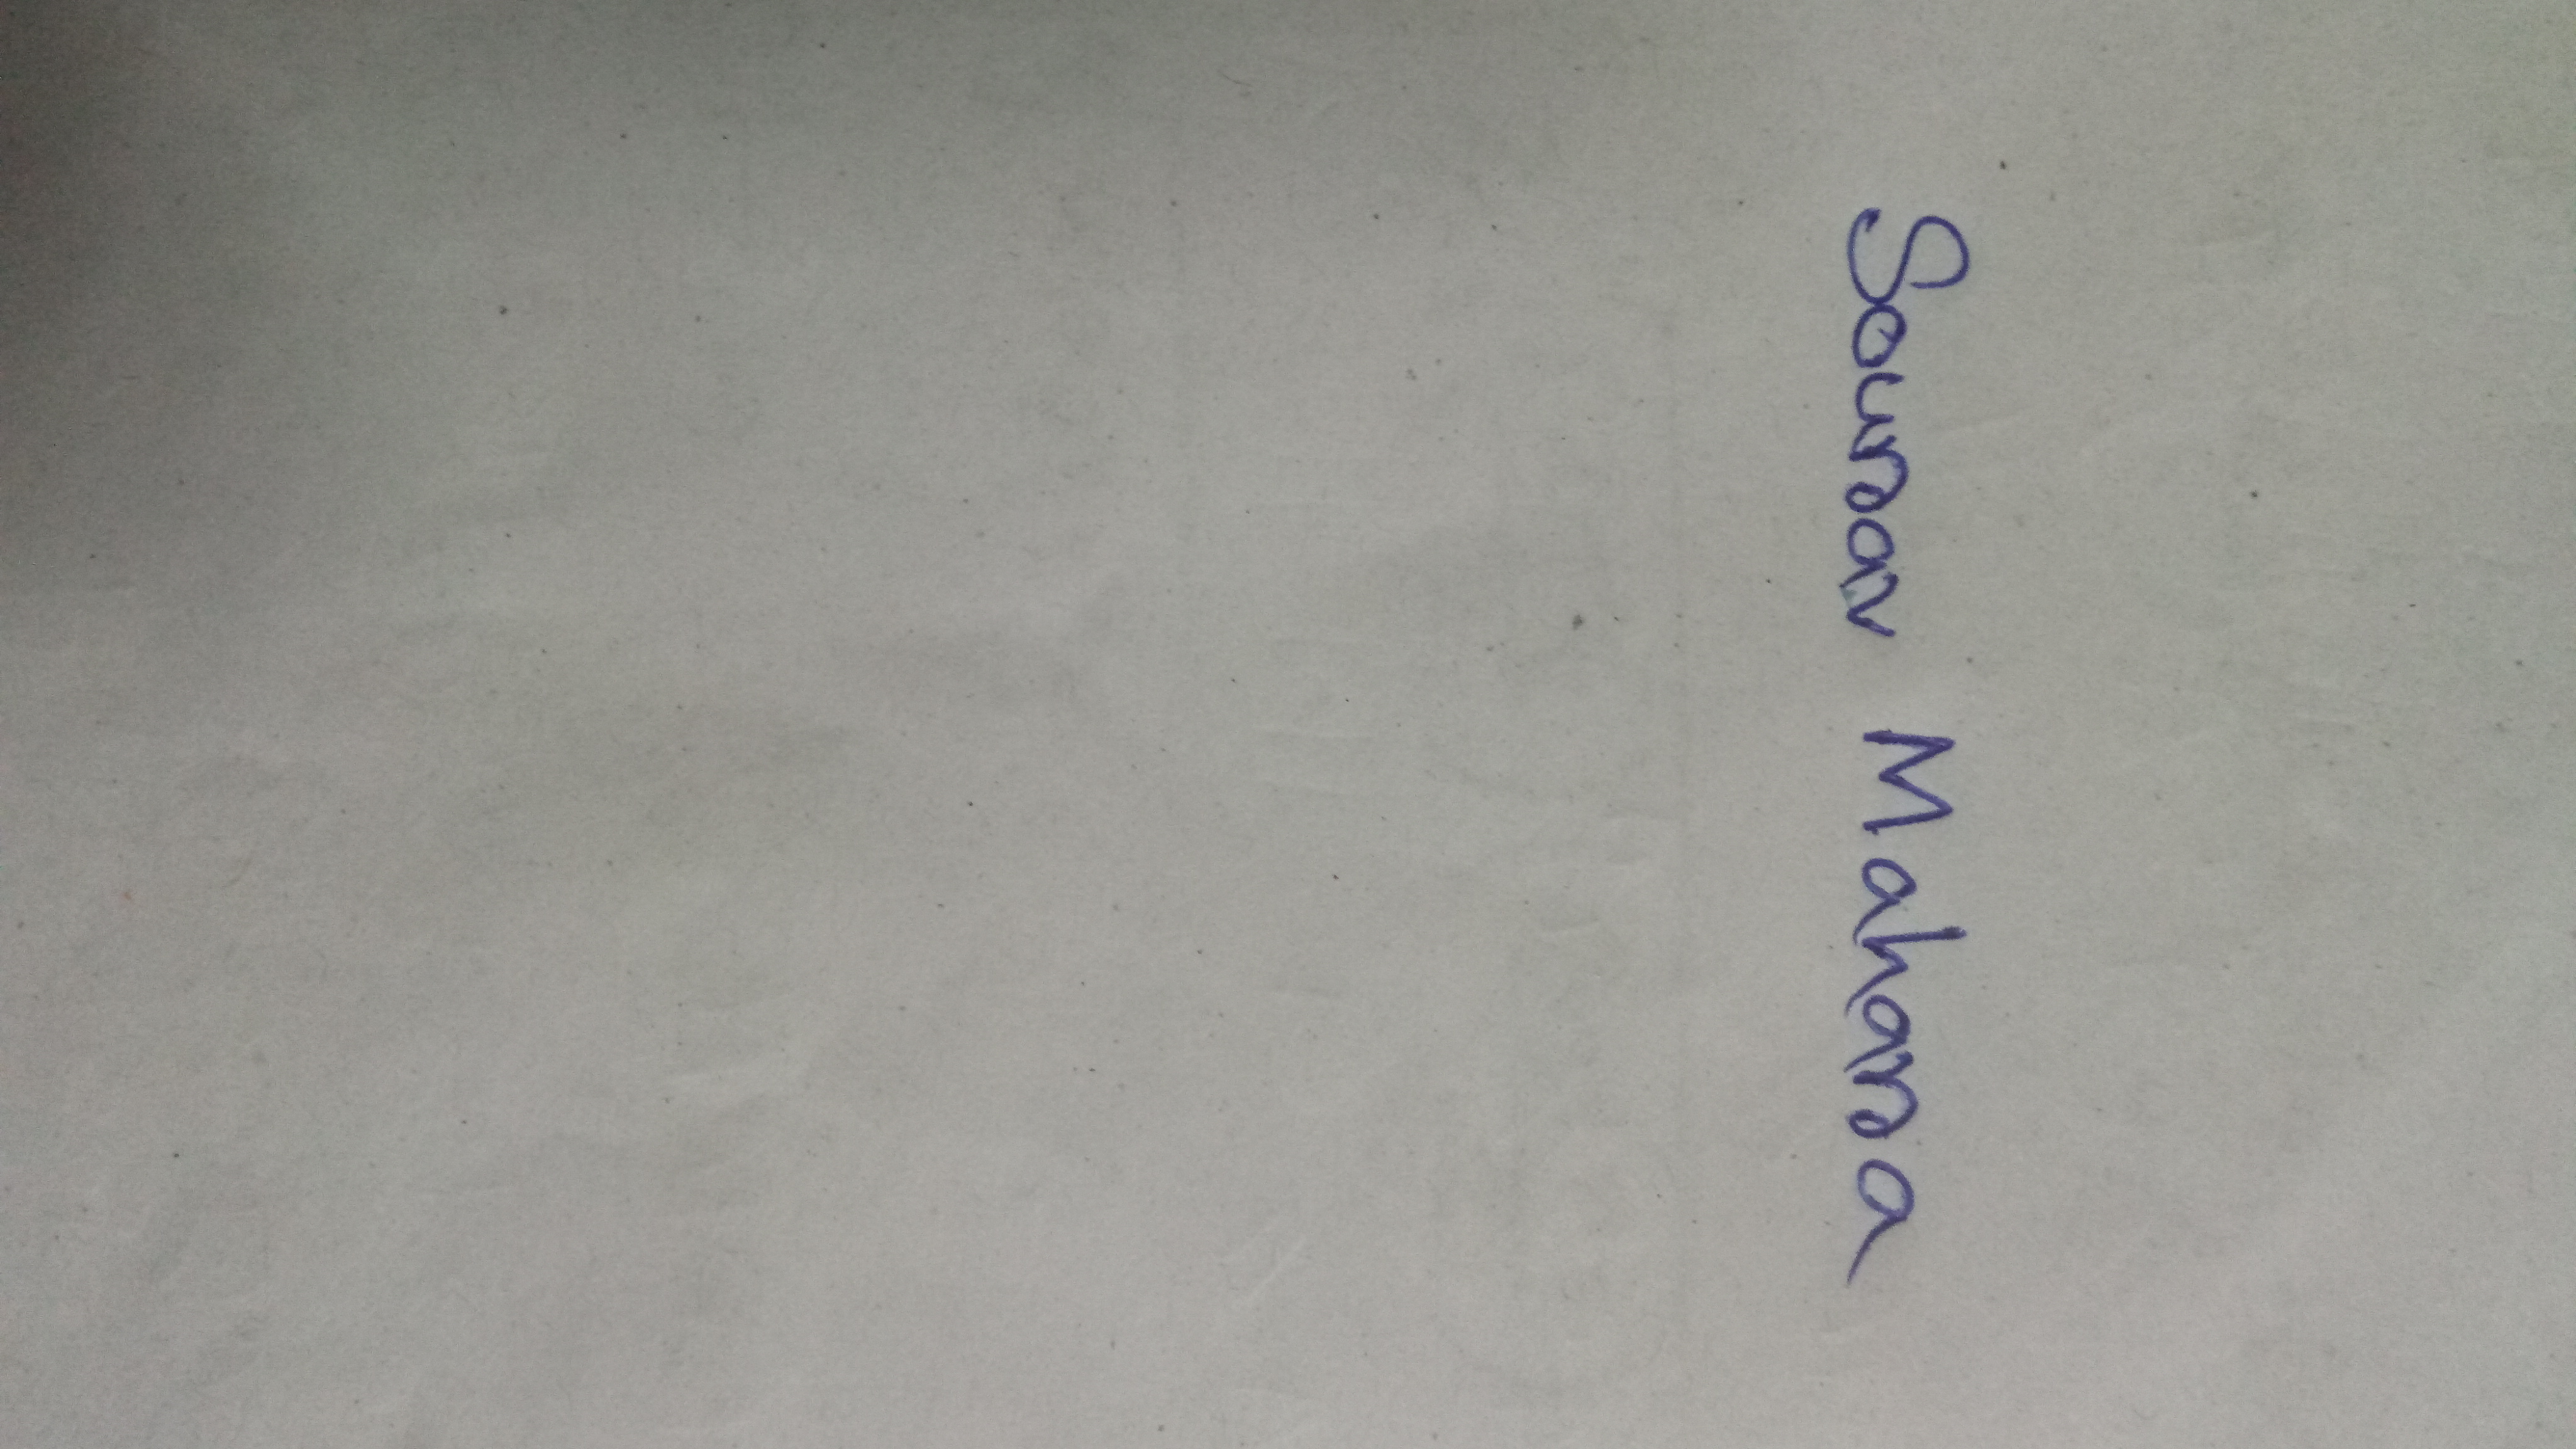 Sourav Mahara